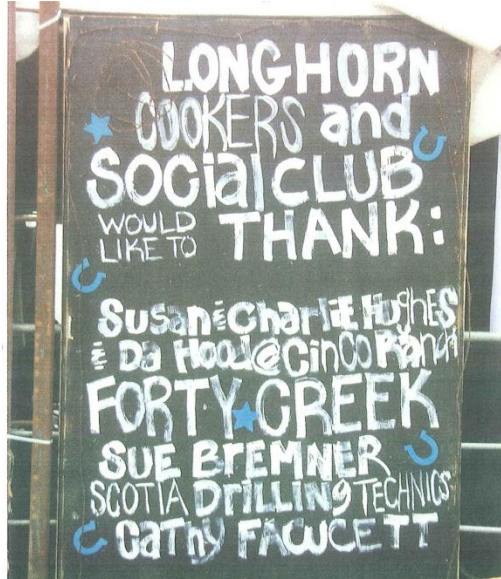 LONGHORN
COOKERS and
SOCial CLUB
WOULD
LIKE TO
THANK:
Susan & CharliE HughES
& Da Hood@CinCo Ranch
FORTY CREEK
SUE BrEMNER
SCOTIA DrILLINg TECHNICS
CaThy FAWCETT